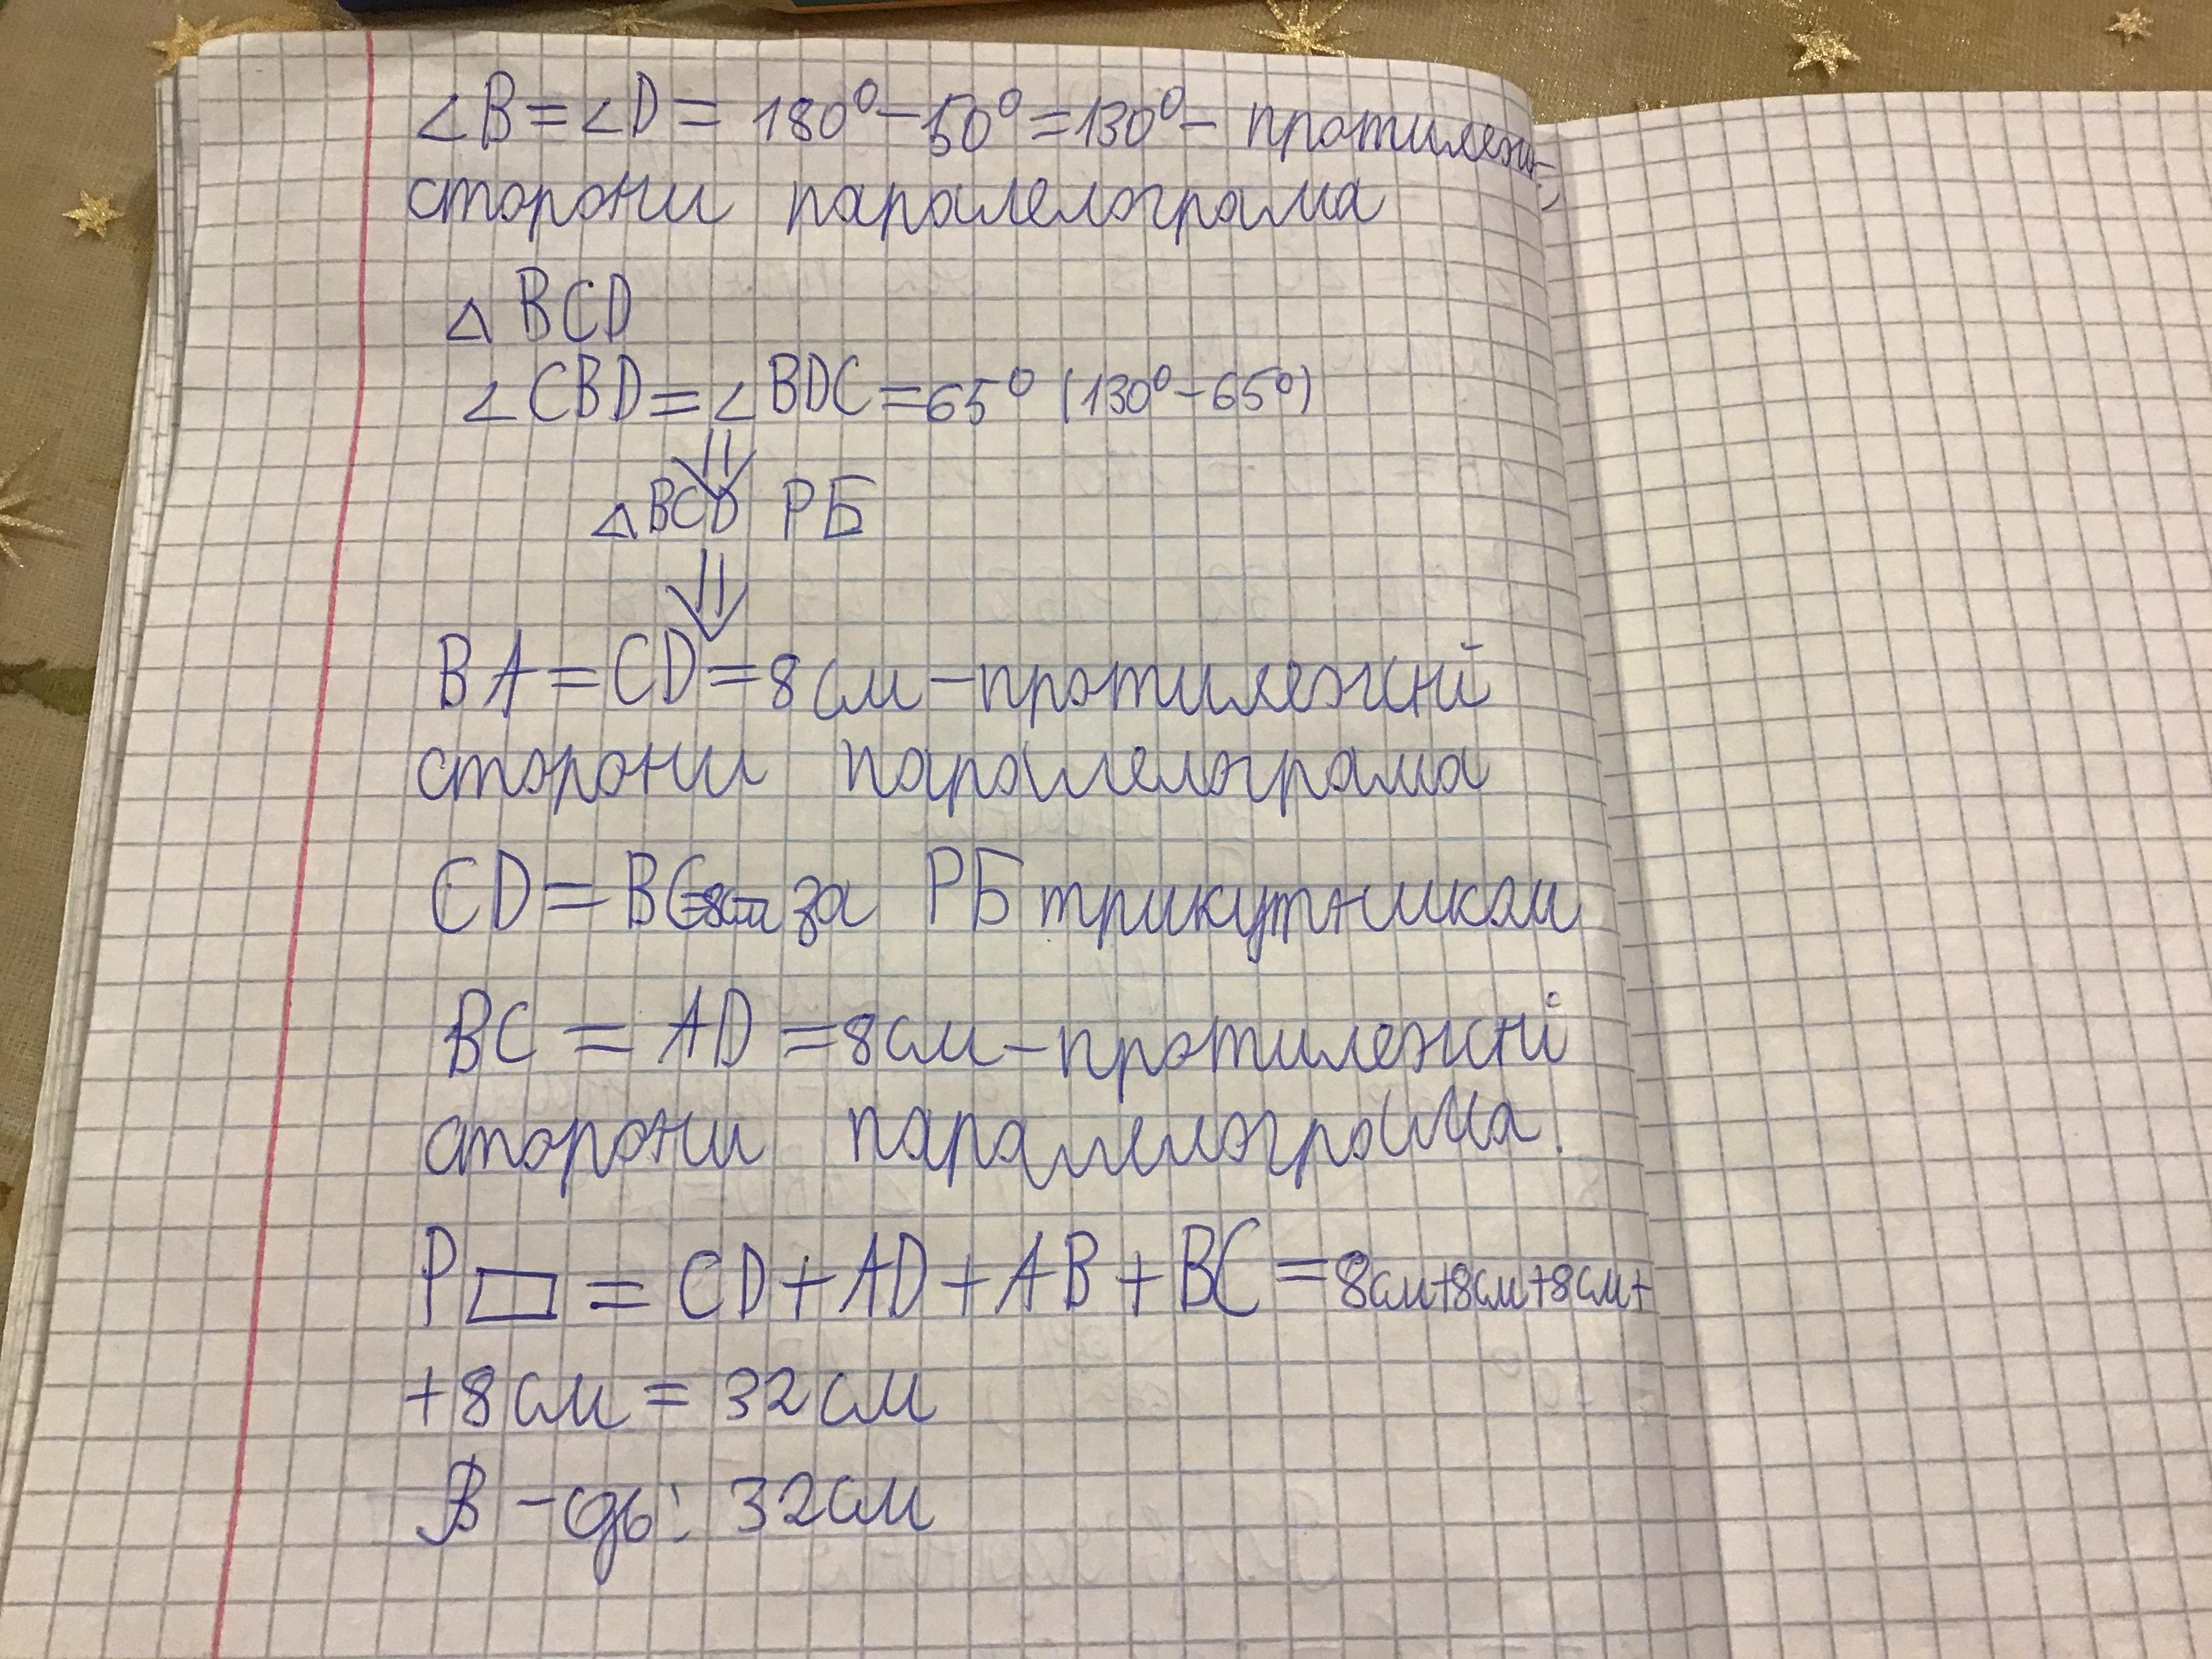 ∠B=∠D= 180°-50°=130°- протилежн-
сторони паралелограма
△ BCD
∠CBD=∠BDC=65° (130°-65°)
⇓
△BCD РБ
⇓
BA=CD=8см-протилежні
сторони паралелограма
CD=BC=8см за РБ трикутником
BC = AD =8см-протилежні
сторони паралелограма.
P▱ = CD+AD+AB+BC=8см+8см+8см+
+8см = 32см
В-дь: 32см